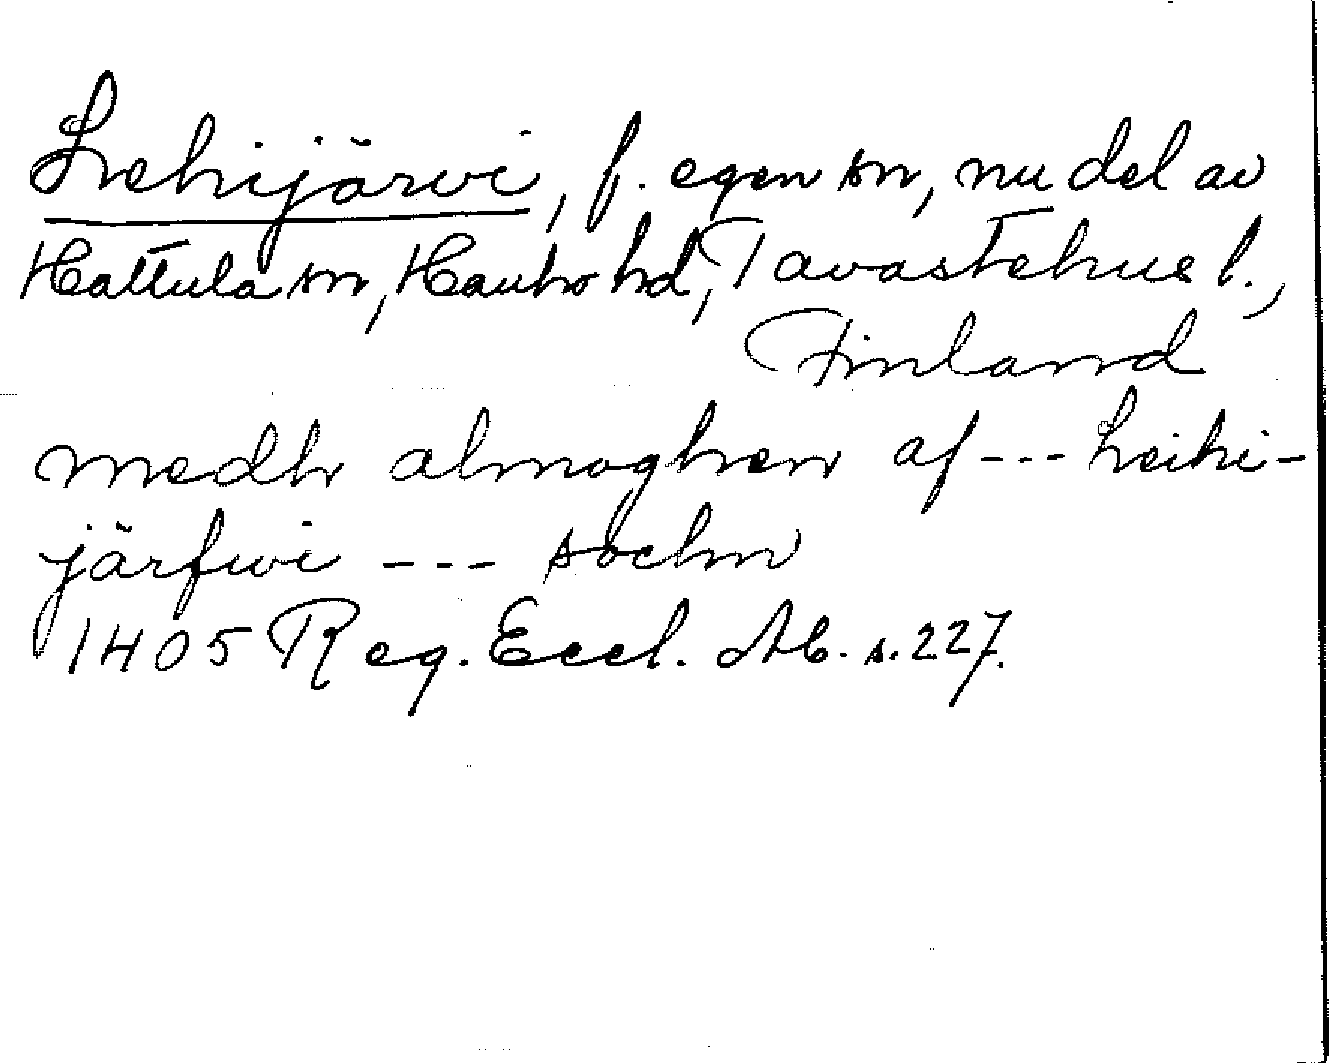 Lehijärvi, f. egen sn, nu del av
Hattula sn, Hauho hd, Tavastehus l.,
Finland
medh almoghen af --- Leihi-
järfwi --- sochn
1405 Reg. Eccl. Ab. s. 227.